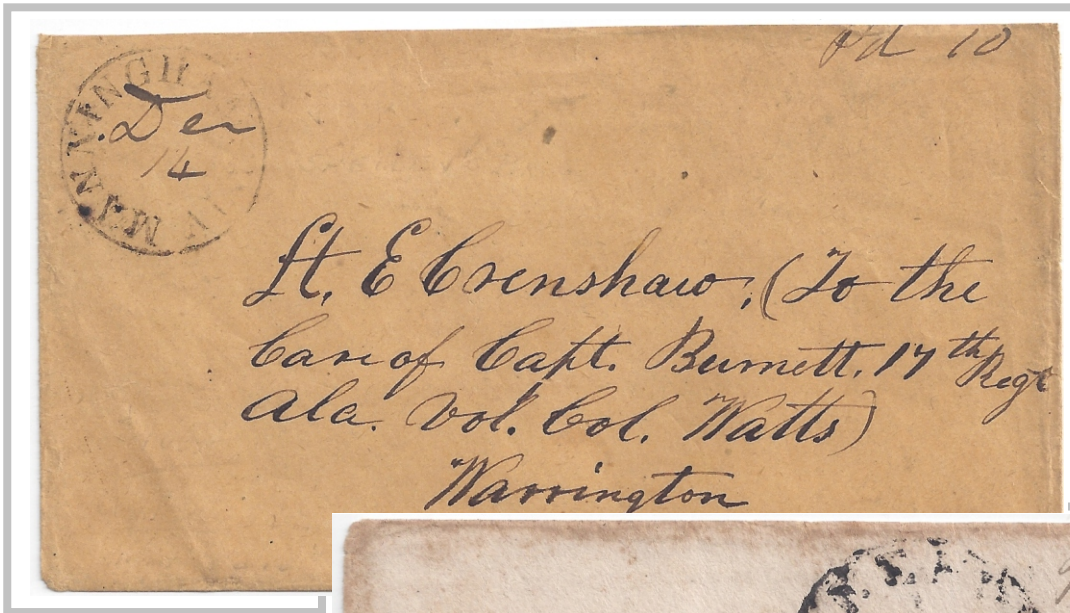 Pd 10
MANNINGHAM
Dec
14
Lt. E Crenshaw, (To the
Care of Capt. Burnett. 17th Regt
Ala. Vol. Col. Watts)
Warrington